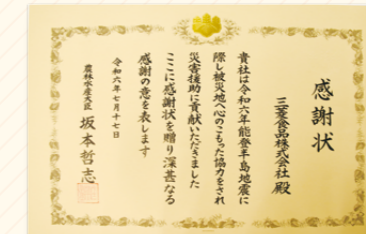 感謝状
三菱食品株式会社 殿
貴社は令和六年能登半島地震に
際し被災地へ心のこもった協力をされ
災害援助に貢献いただきました
ここに感謝状を贈り深甚なる
感謝の意を表します
令和六年七月十七日
農林水産大臣 坂本哲志